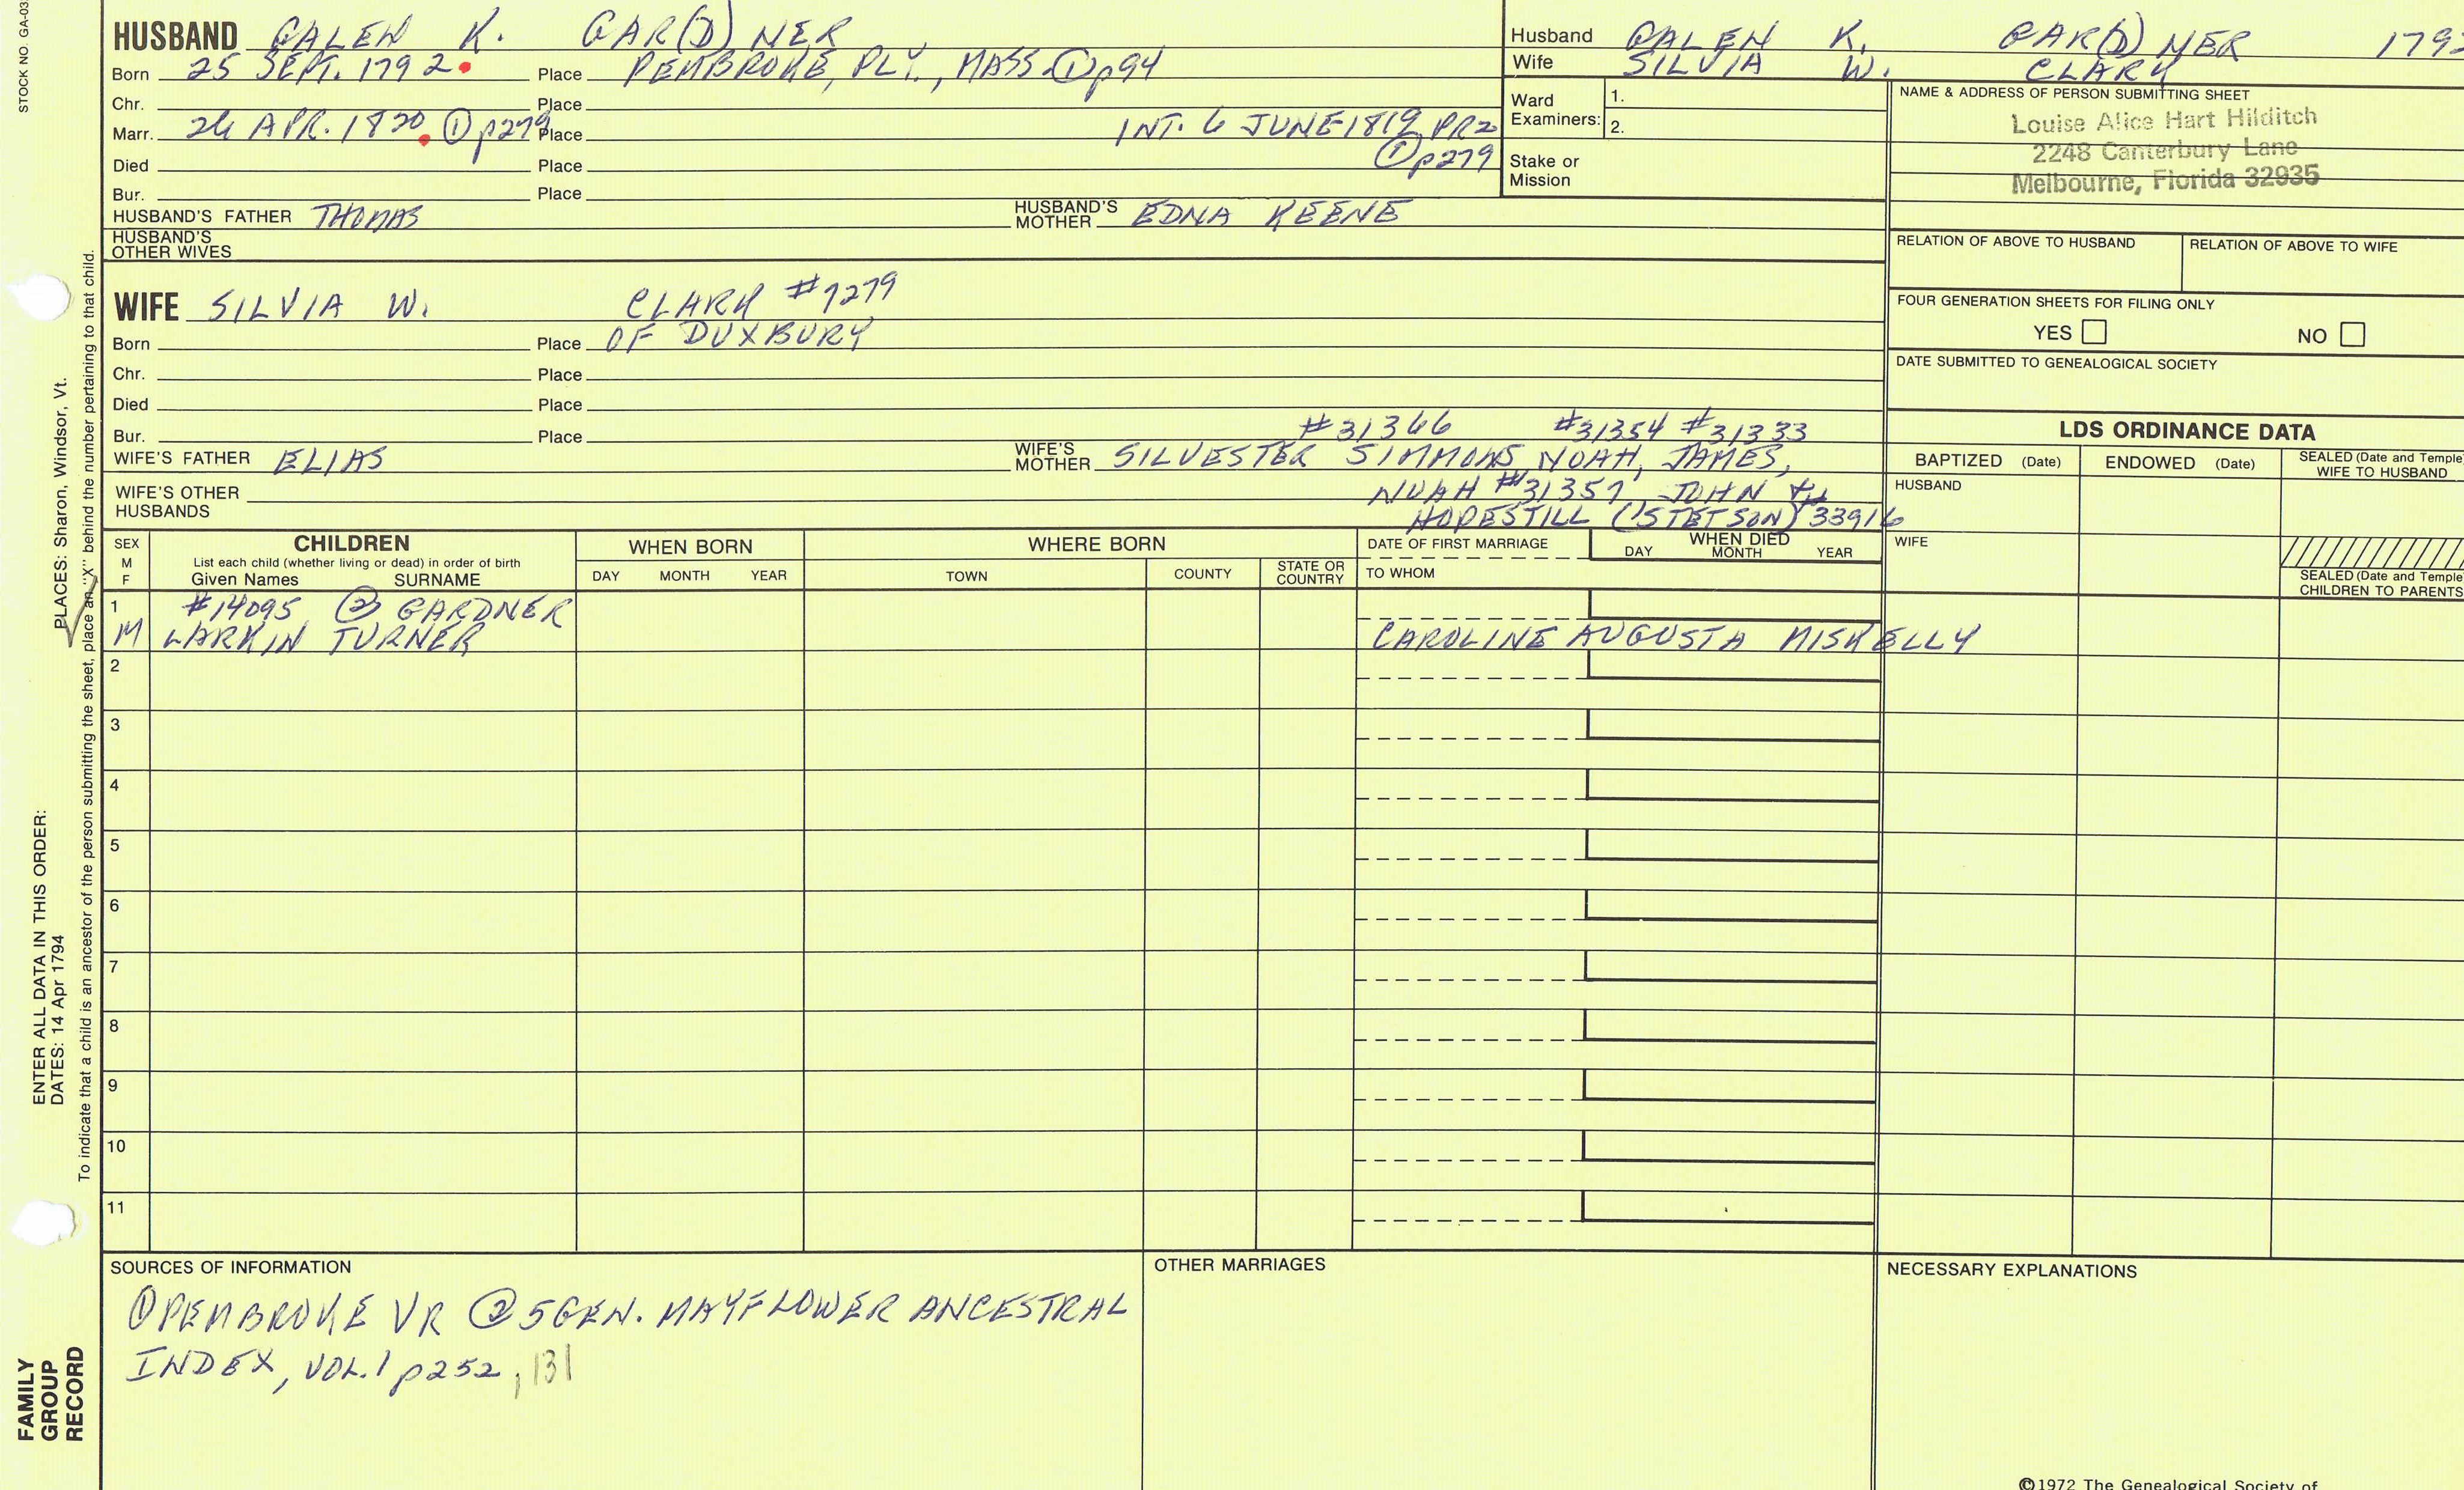 STOCK NO. GA-03
HUSBAND GALEN K. GAR(D)NER
Born 25 SEPT. 1792 Place PEMBROKE, PLY., MASS. ① p94
Chr. Place
Marr. 24 APR. 1820 ① p279 Place INT. 6 JUNE 1819 PR2
① p279
Died Place
Bur. Place
HUSBAND'S FATHER THOMAS HUSBAND'S MOTHER EDNA KEENE
HUSBAND'S OTHER WIVES
WIFE SILVIA W. CLARK #7279
Born Place OF DUXBURY
Chr. Place
Died Place
Bur. Place #31366 #31354 #31333
WIFE'S FATHER ELIAS WIFE'S MOTHER SILVESTER SIMMONS, NOAH, JAMES,
WIFE'S OTHER HUSBANDS NOAH #31357, JOHN
HOPESTILL (STETSON) 33916
Husband GALEN K. GAR(D)NER 179
Wife SILVIA W. CLARK
Ward Examiners: 1.
2.
Stake or Mission
NAME & ADDRESS OF PERSON SUBMITTING SHEET
Louise Alice Hart Hilditch
2248 Canterbury Lane
Melbourne, Florida 32935
RELATION OF ABOVE TO HUSBAND RELATION OF ABOVE TO WIFE
FOUR GENERATION SHEETS FOR FILING ONLY
YES NO
DATE SUBMITTED TO GENEALOGICAL SOCIETY
LDS ORDINANCE DATA
BAPTIZED (Date) ENDOWED (Date) SEALED (Date and Temple) WIFE TO HUSBAND
HUSBAND
WIFE
SEALED (Date and Temple) CHILDREN TO PARENTS
SEX M F
CHILDREN
List each child (whether living or dead) in order of birth
Given Names SURNAME
WHEN BORN
DAY MONTH YEAR
WHERE BORN
TOWN COUNTY STATE OR COUNTRY
DATE OF FIRST MARRIAGE
TO WHOM
WHEN DIED
DAY MONTH YEAR
1 #14095 ② GARDNER
M LARKIN TURNER CAROLINE AUGUSTA NISKELLY
2
3
4
5
6
7
8
9
10
11
SOURCES OF INFORMATION
① PEMBROKE VR ② 5 GEN. MAYFLOWER ANCESTRAL
INDEX, VOL. 1 p252, 131
OTHER MARRIAGES
NECESSARY EXPLANATIONS
©1972 The Genealogical Society of
PLACES: Sharon, Windsor, Vt.
To indicate that a child is an ancestor of the person submitting the sheet, place an "X" behind the number pertaining to that child.
ENTER ALL DATA IN THIS ORDER:
DATES: 14 Apr 1794
FAMILY
GROUP
RECORD